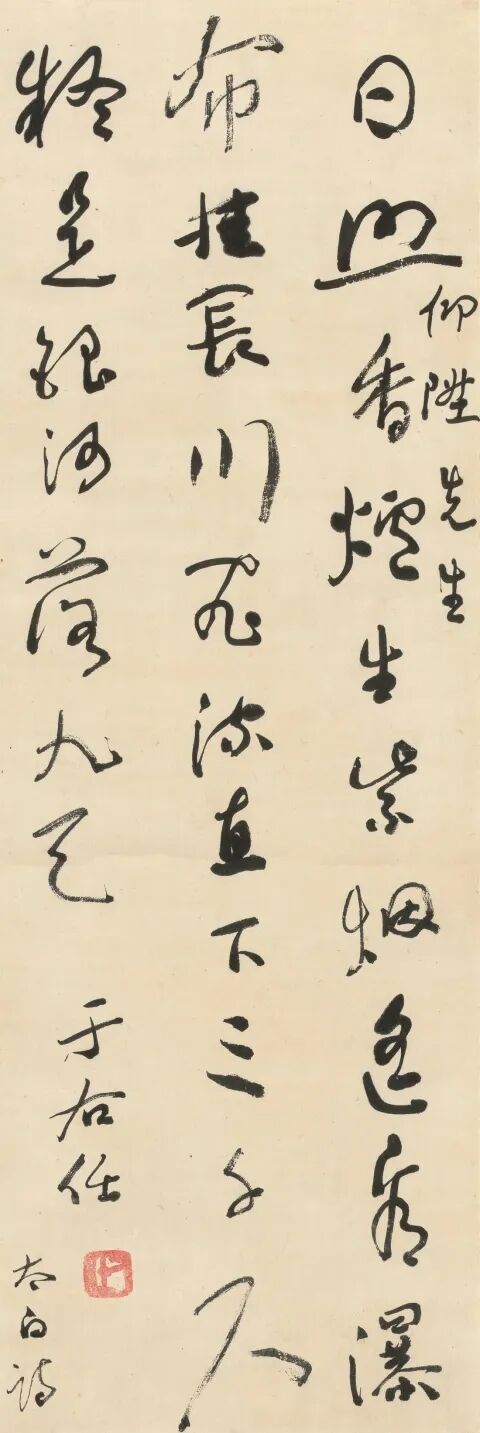 仰陞先生
日照香爐生紫烟遙看瀑
布挂長川飛流直下三千尺
疑是銀河落九天
于右任
太白詩